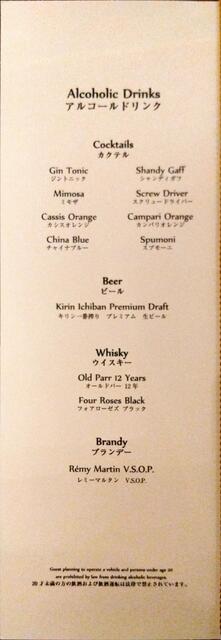 Alcoholic Drinks
アルコールドリンク
Cocktails
カクテル
Gin Tonic
ジントニック
Shandy Gaff
シャンディガフ
Mimosa
ミモザ
Screw Driver
スクリュードライバー
Cassis Orange
カシスオレンジ
Campari Orange
カンパリオレンジ
China Blue
チャイナブルー
Spumoni
スプモーニ
Beer
ビール
Kirin Ichiban Premium Draft
キリン一番搾り プレミアム 生ビール
Whisky
ウイスキー
Old Parr 12 Years
オールドパー 12年
Four Roses Black
フォアローゼズ ブラック
Brandy
ブランデー
Rémy Martin V.S.O.P.
レミーマルタン V.S.O.P.
Guest planning to operate a vehicle and persons under age 20
are prohibited by law from drinking alcoholic beverages.
20才未満の方の飲酒および飲酒運転は法律で禁止されています。